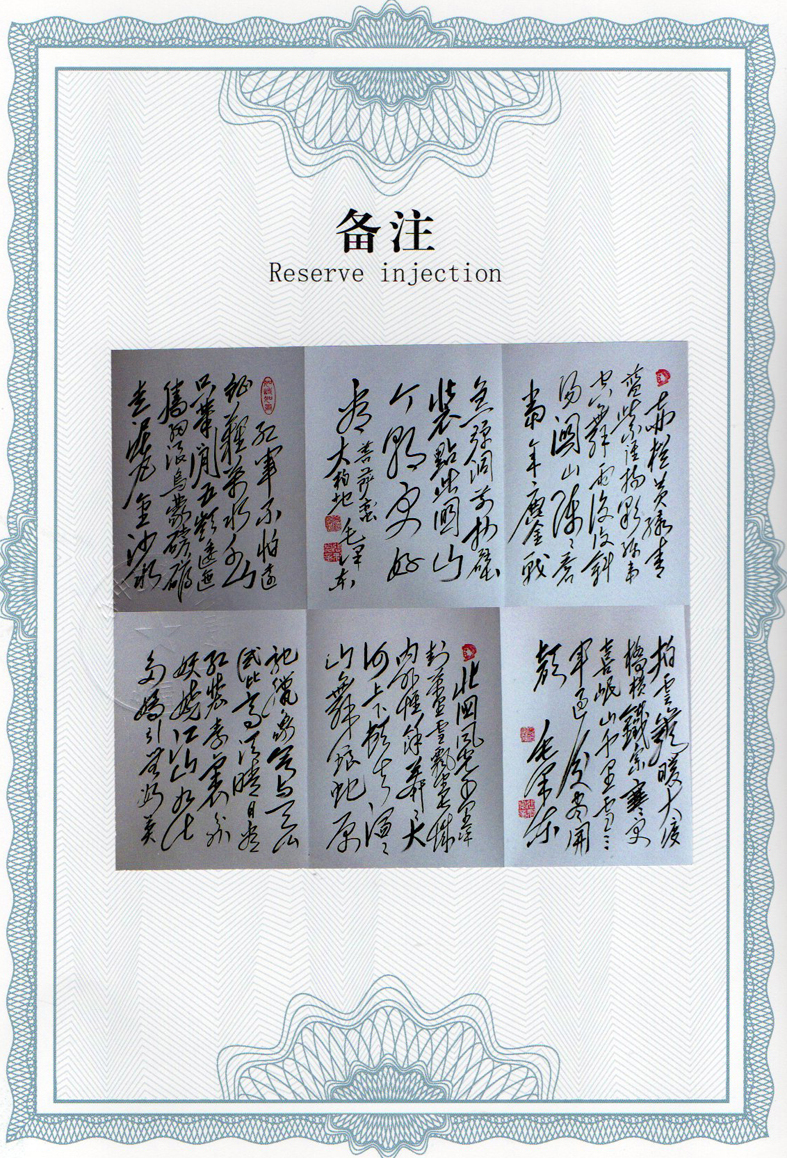 备注
Reserve injection
赤橙黄绿青
蓝紫谁持彩练当
空舞雨后复斜
阳關山阵〻苍
當年鏖戰
急弹洞前村壁
装點此関山
今朝更好
看
菩萨蛮
大柏地
毛泽东
红軍不怕远
征難萬水千山
只等闲五岭逶迤
腾细浪乌蒙磅礴
走泥丸金沙水
拍雲崖暖大渡
橋横鐵索寒更
喜岷山千里雪三
军过后尽開
颜
毛泽东
北国风光千里冰
封萬里雪飘望长城
内外惟馀莽〻大
河上下顿失滔〻
山舞银蛇原
驰蜡象欲与天公
试比高须晴日看
红装素裹分外
妖娆江山如此
多娇引无数英